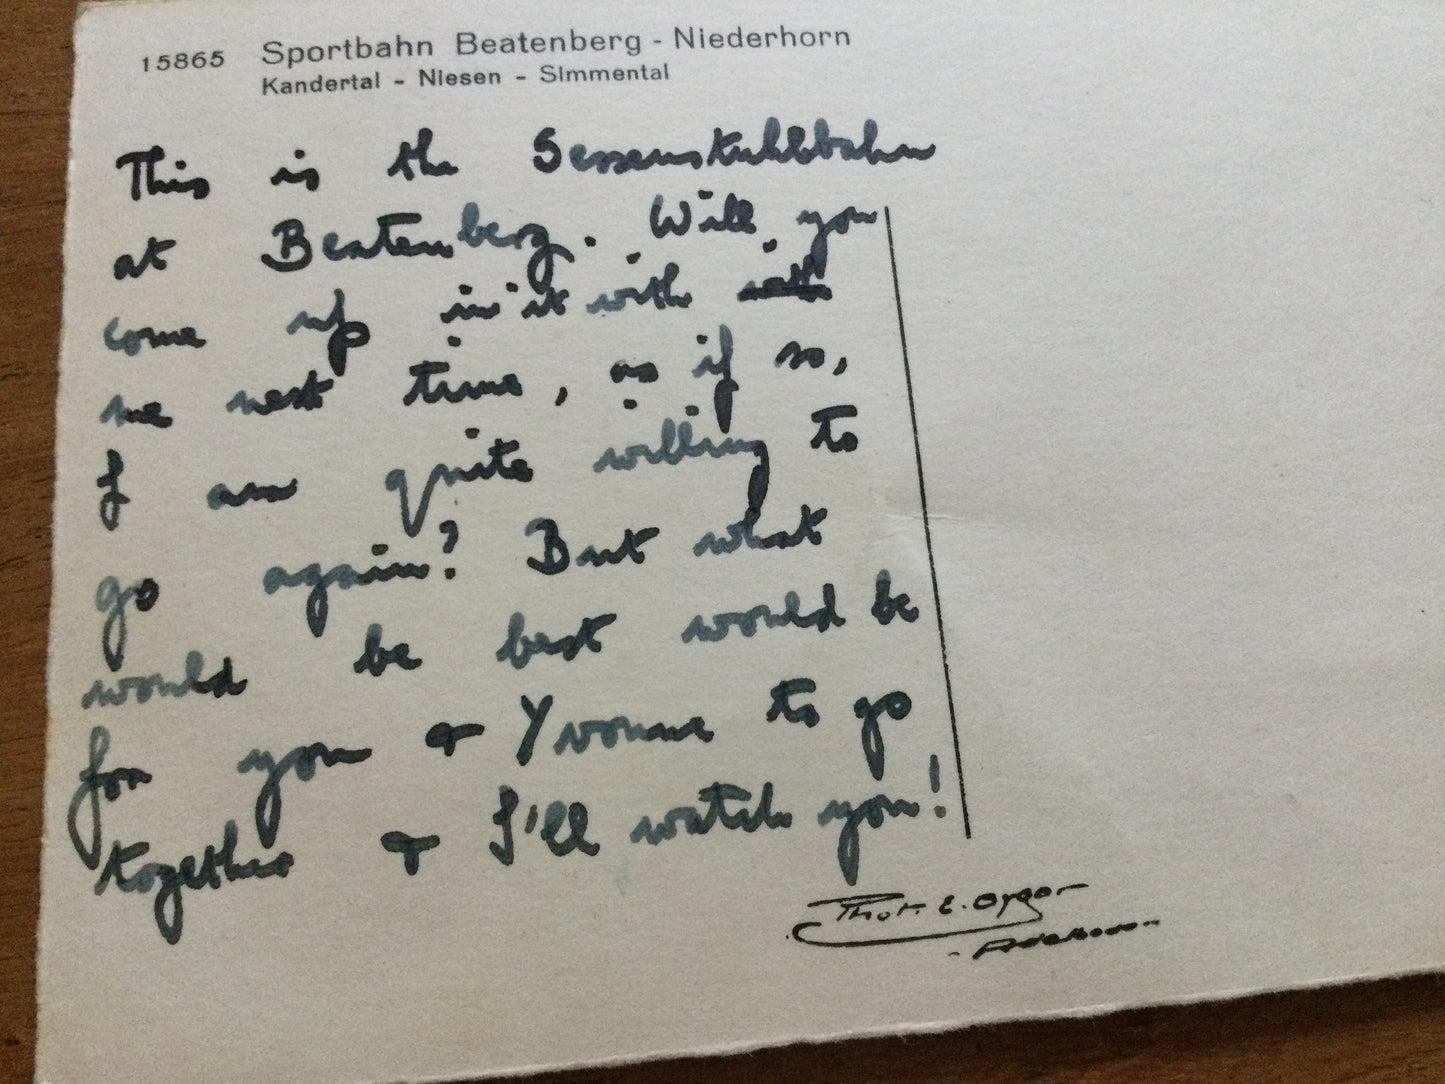 15865 Sportbahn Beatenberg - Niederhorn
Kandertal - Niesen - Simmental
This is the Sessenstuhlbahn
at Beatenberg. Will you
come up in it with
me next time, as if so,
I am quite willing to
go again? But what
would be best would be
for you & Yvonne to go
together & I'll watch you!
Phot. E. Gyger
Adelboden